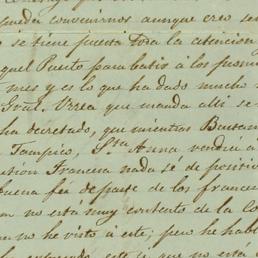 pueda convenirnos aunque creo se
se tiene puesta toda la atencion
quel Puerto para batir á los pronun
mes y es lo que ha dado mucho
Gral. Urrea que manda alli se
ha decretado, que mientras Bustam
Tampico, Sta. Anna vendra á
stion Francesa nada sé de positivo
buena fee de parte de los frances
no está muy contento de la Co
no he visto á este; pero he habl
este y que no está